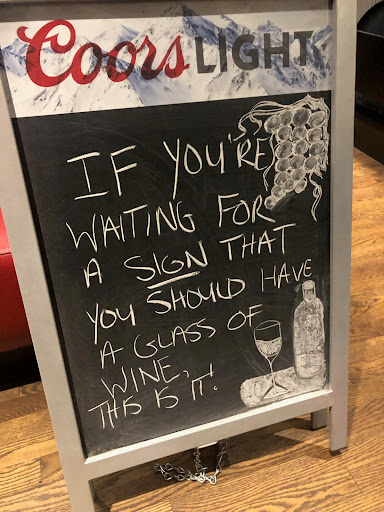 Coors LIGHT
IF YOU'RE
WAITING FOR
A SIGN THAT
YOU SHOULD HAVE
A GLASS OF
WINE,
THIS IS IT!